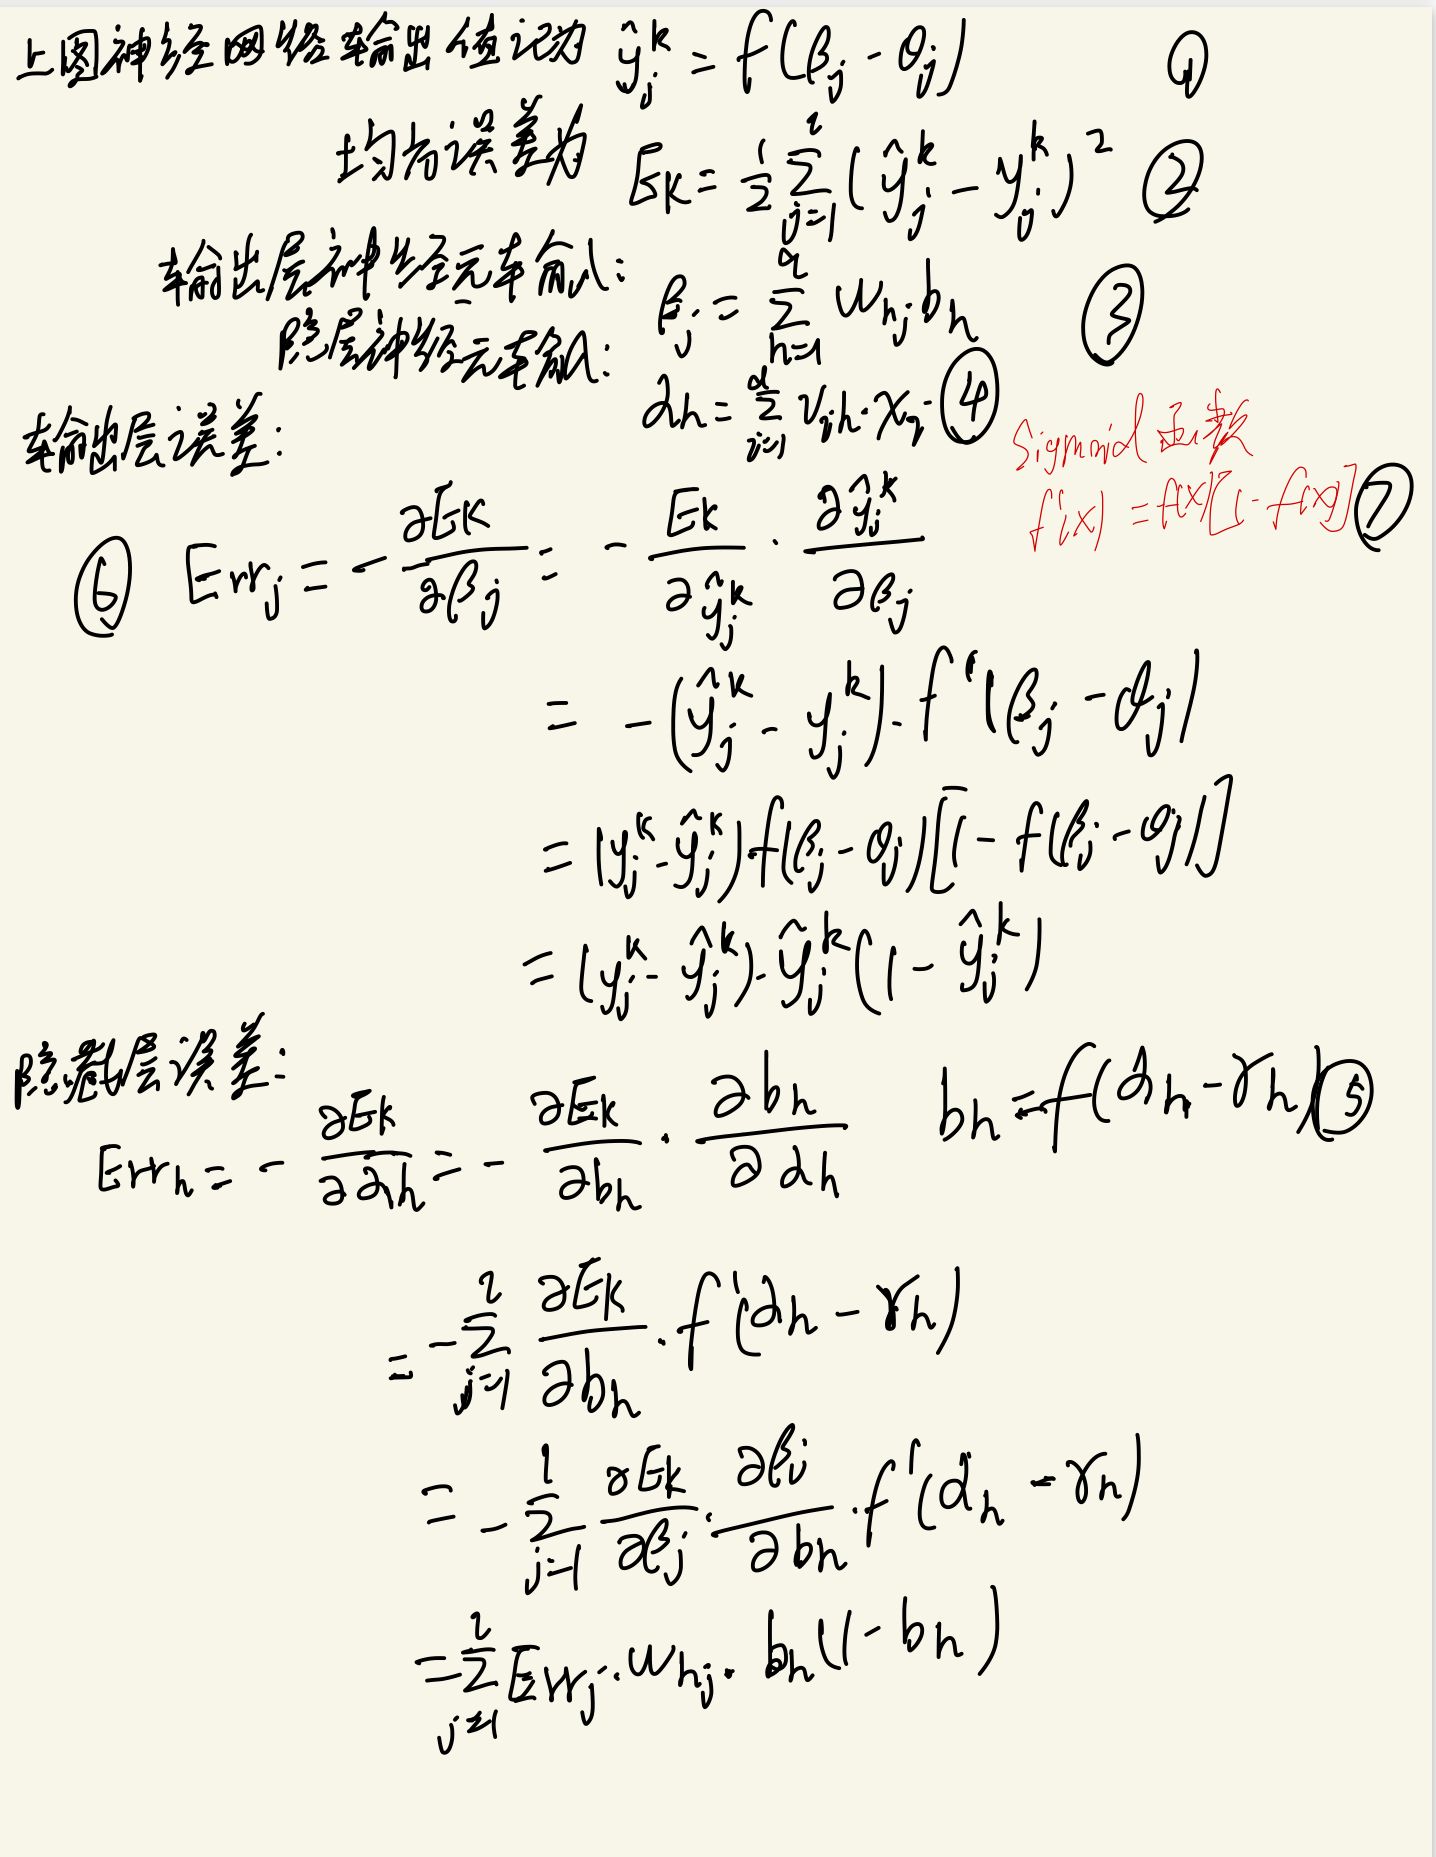 上图神经网络输出值记为 ŷ_j^k = f(β_j - θ_j) ①
均方误差为 E_k = 1/2 Σ_{j=1}^{l} (ŷ_j^k - y_j^k)^2 ②
输出层神经元输入: β_j = Σ_{h=1}^{q} w_{hj} b_h ③
隐层神经元输入: α_h = Σ_{i=1}^{d} v_{ih} · x_i ④
Sigmoid 函数
f'(x) = f(x)[1 - f(x)] ⑦
输出层误差:
⑥ Err_j = - ∂E_k/∂β_j = - E_k/∂ŷ_j^k · ∂ŷ_j^k/∂β_j
= - (ŷ_j^k - y_j^k) · f'(β_j - θ_j)
= (y_j^k - ŷ_j^k) · f(β_j - θ_j)[1 - f(β_j - θ_j)]
= (y_j^k - ŷ_j^k) · ŷ_j^k (1 - ŷ_j^k)
隐藏层误差:
Err_h = - ∂E_k/∂α_h = - ∂E_k/∂b_h · ∂b_h/∂α_h b_h = f(α_h - γ_h) ⑤
= - Σ_{j=1}^{l} ∂E_k/∂b_h · f'(α_h - γ_h)
= - Σ_{j=1}^{l} ∂E_k/∂β_j · ∂β_j/∂b_h · f'(α_h - γ_h)
= Σ_{j=1}^{l} Err_j · w_{hj} · b_h (1 - b_h)